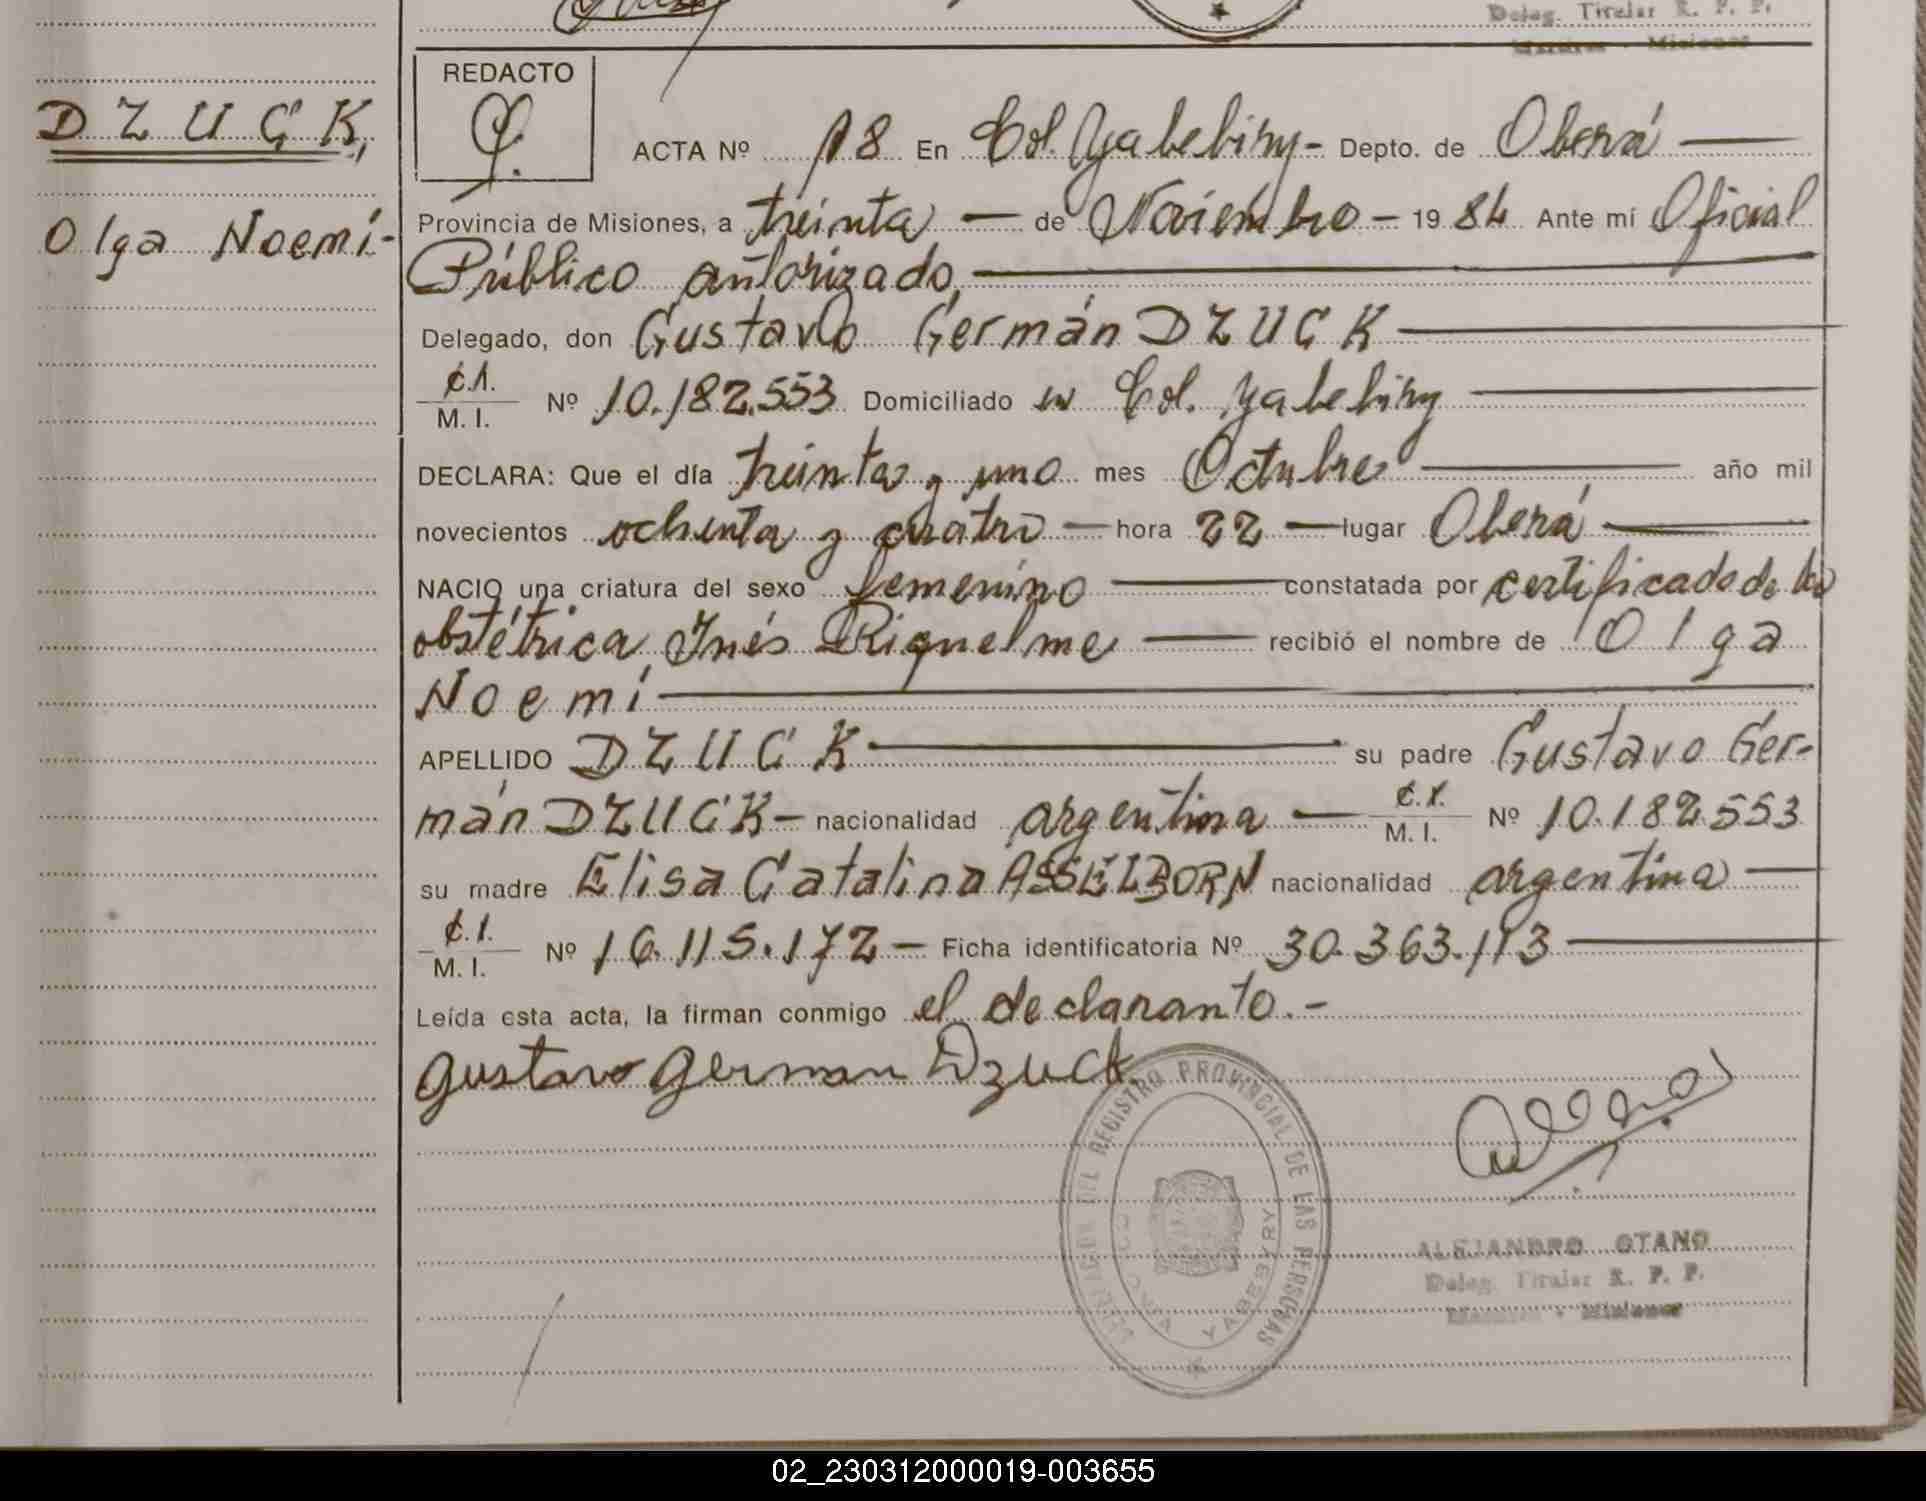 Deleg. Titular R. P. P.
Mártires - Misiones
DZUCK,
Olga Noemí-
REDACTO
ACTA Nº 18 En Col. Yabebiry- Depto. de Oberá
Provincia de Misiones, a treinta — de Noviembre — 1984 Ante mí Oficial
Público autorizado,
Delegado, don Gustavo Germán DZUCK
C.I.
M. I. Nº 10.182.553 Domiciliado en Col. Yabebiry
DECLARA: Que el día treinta y uno mes Octubre — año mil
novecientos ochenta y cuatro — hora 22 — lugar Oberá
NACIO una criatura del sexo femenino — constatada por certificado de la
obstétrica, Inés Riquelme — recibió el nombre de Olga
Noemí
APELLIDO DZUCK — su padre Gustavo Ger-
mán DZUCK — nacionalidad argentina — C.I.
M. I. Nº 10.182.553
su madre Elisa Catalina ASSELBORN nacionalidad argentina —
C.I.
M. I. Nº 16.115.172 — Ficha identificatoria Nº 30.363.113
Leída esta acta, la firman conmigo el declarante.-
Gustavo German Dzuck
DEL REGISTRO PROVINCIAL DE LAS PERSONAS
YABEBIRY
ALEJANDRO OTANO
Deleg. Titular R. P. P.
Mártires - Misiones
02_230312000019-003655